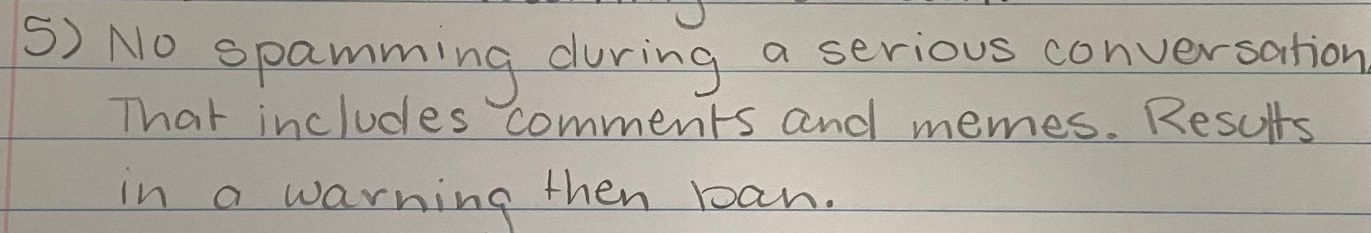 5) No spamming during a serious conversation.
That includes comments and memes. Results
in a warning then ban.